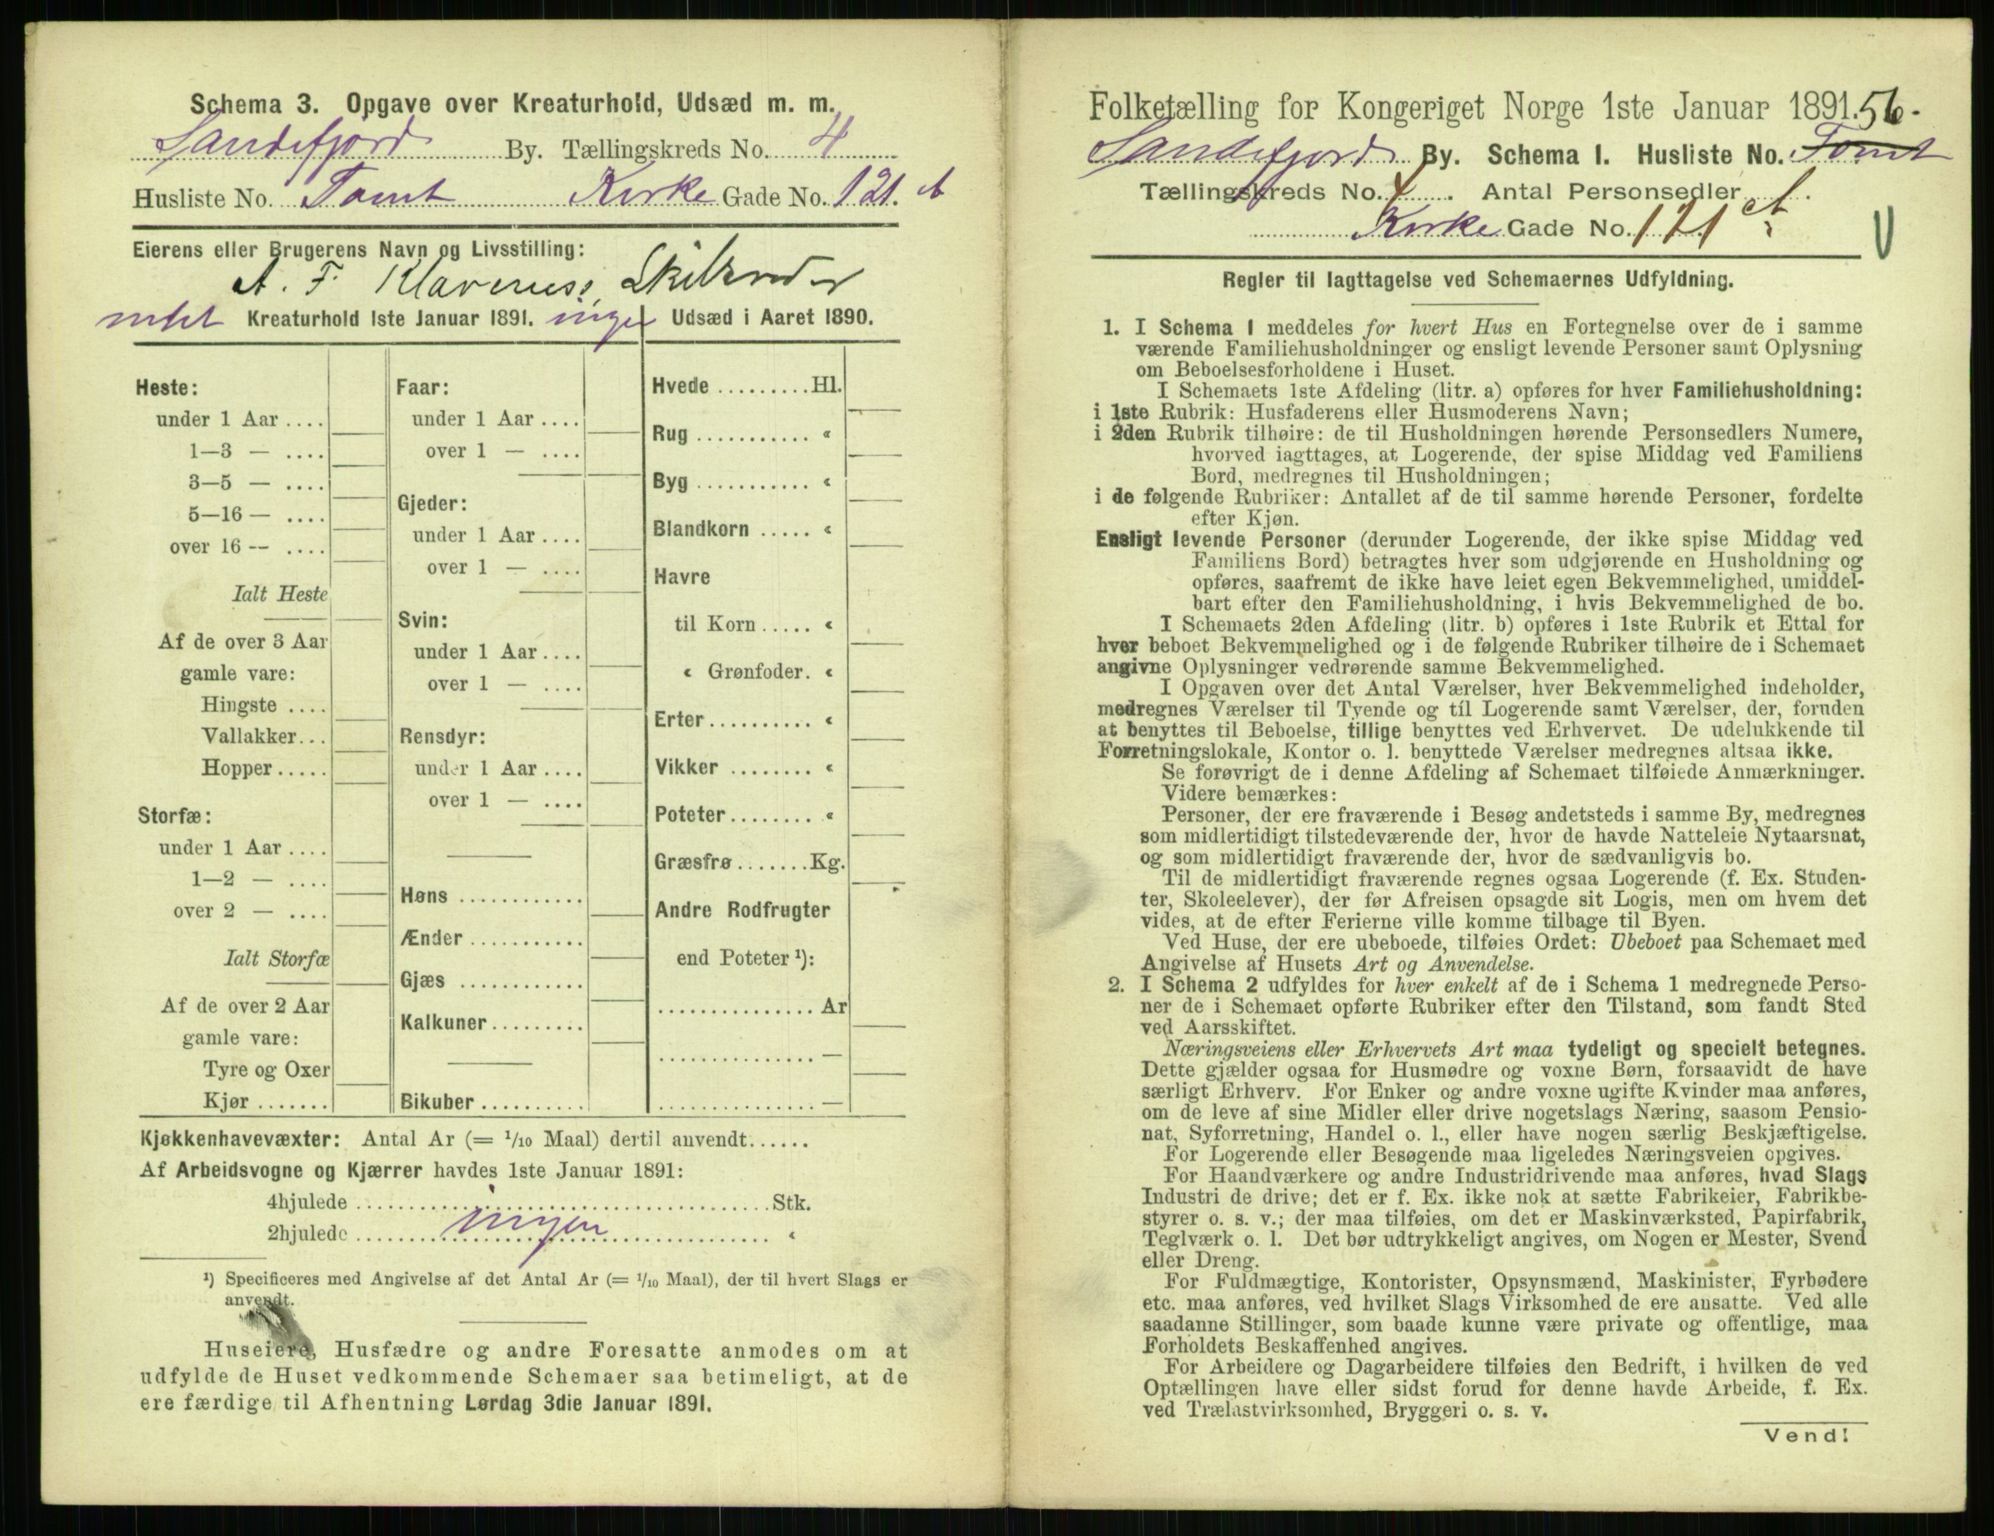 Schema 3. Opgave over Kreaturhold, Udsæd m. m.
Sandefjord By. Tællingskreds No. 4
Husliste No. Tomt Kirke Gade No. 121. A
Eierens eller Brugerens Navn og Livsstilling:
A. F. Klaveness, Skibsreder
intet Kreaturhold 1ste Januar 1891. ingen Udsæd i Aaret 1890.
Heste:
under 1 Aar ....
1—3 — ....
3—5 — ....
5—16 — ....
over 16 — ....
Ialt Heste
Af de over 3 Aar
gamle vare:
Hingste ....
Vallakker...
Hopper.....
Storfæ:
under 1 Aar ....
1—2 — ....
over 2 — ....
Ialt Storfæ
Af de over 2 Aar
gamle vare:
Tyre og Oxer
Kjør .......
Faar:
under 1 Aar ....
over 1 — ....
Gjeder:
under 1 Aar ....
over 1 — ....
Svin:
under 1 Aar ....
over 1 — ....
Rensdyr:
under 1 Aar ....
over 1 — ....
Høns ............
Ænder ...........
Gjæs ............
Kalkuner.........
Bikuber ..........
Hvede .........Hl.
Rug ........... «
Byg ........... «
Blandkorn ..... «
Havre
til Korn ..... «
« Grønfoder. «
Erter.......... «
Vikker ........ «
Poteter........ «
Græsfrø .......Kg.
Andre Rodfrugter
end Poteter ¹):
............... Ar
............... —
............... —
Kjøkkenhavevæxter: Antal Ar (= 1/10 Maal) dertil anvendt......
Af Arbeidsvogne og Kjærrer havdes 1ste Januar 1891:
4hjulede ........................................ Stk.
2hjulede ........ingen........ «
¹) Specificeres med Angivelse af det Antal Ar (= 1/10 Maal), der til hvert Slags er
anvendt.
Huseiere, Husfædre og andre Foresatte anmodes om at
udfylde de Huset vedkommende Schemaer saa betimeligt, at de
ere færdige til Afhentning Lørdag 3die Januar 1891.
Folketælling for Kongeriget Norge 1ste Januar 1891. 56.
Sandefjord By. Schema 1. Husliste No. Tomt
Tællingskreds No. 4. Antal Personsedler .
Kirke Gade No. 121 A
Regler til Iagttagelse ved Schemaernes Udfyldning.
1. I Schema 1 meddeles for hvert Hus en Fortegnelse over de i samme
værende Familiehusholdninger og ensligt levende Personer samt Oplysning
om Beboelsesforholdene i Huset.
I Schemaets 1ste Afdeling (litr. a) opføres for hver Familiehusholdning:
i 1ste Rubrik: Husfaderens eller Husmoderens Navn;
i 2den Rubrik tilhøire: de til Husholdningen hørende Personsedlers Numere,
hvorved iagttages, at Logerende, der spise Middag ved Familiens
Bord, medregnes til Husholdningen;
i de følgende Rubriker: Antallet af de til samme hørende Personer, fordelte
efter Kjøn.
Ensligt levende Personer (derunder Logerende, der ikke spise Middag ved
Familiens Bord) betragtes hver som udgjørende en Husholdning og
opføres, saafremt de ikke have leiet egen Bekvemmelighed, umiddel-
bart efter den Familiehusholdning, i hvis Bekvemmelighed de bo.
I Schemaets 2den Afdeling (litr. b) opføres i 1ste Rubrik et Ettal for
hver beboet Bekvemmelighed og i de følgende Rubriker tilhøire de i Schemaet
angivne Oplysninger vedrørende samme Bekvemmelighed.
I Opgaven over det Antal Værelser, hver Bekvemmelighed indeholder,
medregnes Værelser til Tyende og til Logerende samt Værelser, der, foruden
at benyttes til Beboelse, tillige benyttes ved Erhvervet. De udelukkende til
Forretningslokale, Kontor o. l. benyttede Værelser medregnes altsaa ikke.
Se forøvrigt de i denne Afdeling af Schemaet tilføiede Anmærkninger.
Videre bemærkes:
Personer, der ere fraværende i Besøg andetsteds i samme By, medregnes
som midlertidigt tilstedeværende der, hvor de havde Natteleie Nytaarsnat,
og som midlertidigt fraværende der, hvor de sædvanligvis bo.
Til de midlertidigt fraværende regnes ogsaa Logerende (f. Ex. Studen-
ter, Skoleelever), der før Afreisen opsagde sit Logis, men om hvem det
vides, at de efter Ferierne ville komme tilbage til Byen.
Ved Huse, der ere ubeboede, tilføies Ordet: Ubeboet paa Schemaet med
Angivelse af Husets Art og Anvendelse.
2. I Schema 2 udfyldes for hver enkelt af de i Schema 1 medregnede Perso-
ner de i Schemaet opførte Rubriker efter den Tilstand, som fandt Sted
ved Aarsskiftet.
Næringsveiens eller Erhvervets Art maa tydeligt og specielt betegnes.
Dette gjælder ogsaa for Husmødre og voxne Børn, forsaavidt de have
særligt Erhverv. For Enker og andre voxne ugifte Kvinder maa anføres,
om de leve af sine Midler eller drive nogetslags Næring, saasom Pensio-
nat, Syforretning, Handel o. l., eller have nogen særlig Beskjæftigelse.
For Logerende eller Besøgende maa ligeledes Næringsveien opgives.
For Haandværkere og andre Industridrivende maa anføres, hvad Slags
Industri de drive; det er f. Ex. ikke nok at sætte Fabrikeier, Fabrikbe-
styrer o. s. v.; der maa tilføies, om det er Maskinværksted, Papirfabrik,
Teglværk o. l. Det bør udtrykkeligt angives, om Nogen er Mester, Svend
eller Dreng.
For Fuldmægtige, Kontorister, Opsynsmænd, Maskinister, Fyrbødere
etc. maa anføres, ved hvilket Slags Virksomhed de ere ansatte. Ved alle
saadanne Stillinger, som baade kunne være private og offentlige, maa
Forholdets Beskaffenhed angives.
For Arbeidere og Dagarbeidere tilføies den Bedrift, i hvilken de ved
Optællingen have eller sidst forud for denne havde Arbeide, f. Ex.
ved Trælastvirksomhed, Bryggeri o. s. v.
Vend!